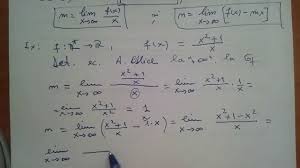 m = lim x→∞ f(x)/x   n = lim x→∞ [f(x) - mx]
Ex: f: → , f(x) = (x²+1)/x
Det. ec. la ∞ la Gf
m = lim x→∞ ((x²+1)/x)/(x) = lim x→∞ (x²+1)/x · 1/x =
= lim x→∞ (x²+1)/x² = 1
m = lim x→∞ ((x²+1)/x - x) = lim x→∞ (x²+1-x²)/x =
lim x→∞